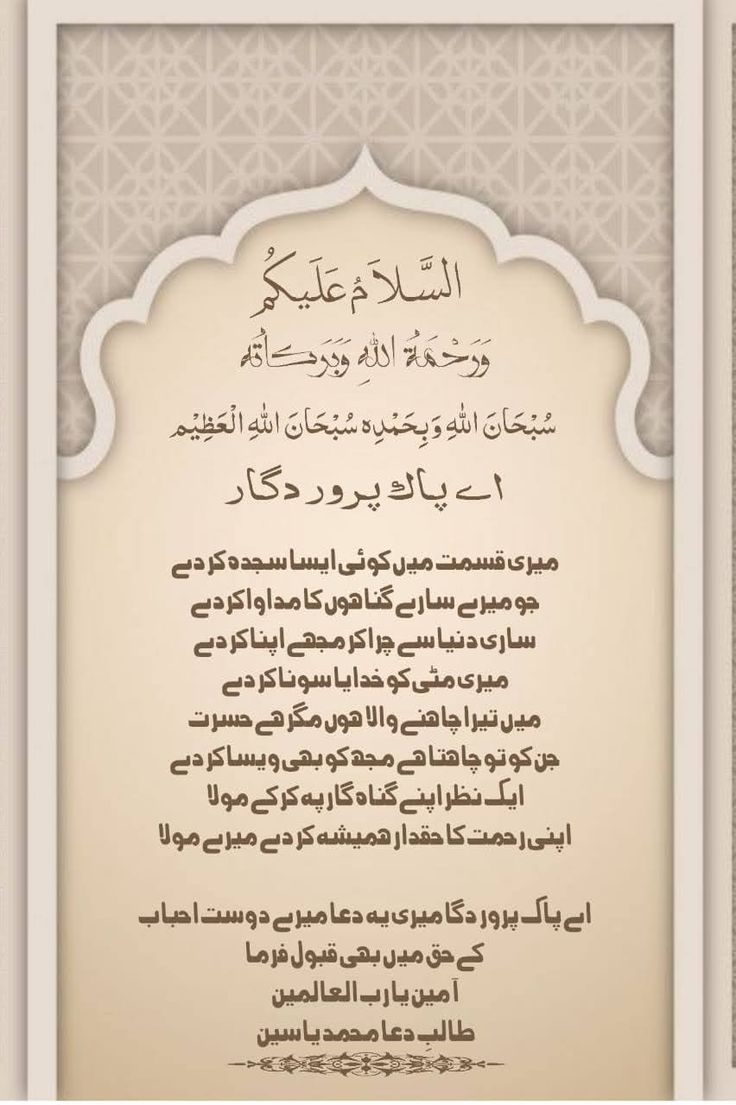 السَّلاَمُ عَلَيكُم
وَرَحْمَةُ اللهِ وَبَرَكَاتُه
سُبْحَانَ اللهِ وَبِحَمْدِه سُبْحَانَ اللهِ الْعَظِيْم
اے پاک پروردگار
میری قسمت میں کوئی ایسا سجدہ کر دے
جو میرے سارے گناھوں کا مداوا کر دے
ساری دنیا سے چرا کر مجھے اپنا کر دے
میری مٹی کو خدایا سونا کر دے
میں تیرا چاھنے والا ھوں مگر ھے حسرت
جن کو تو چاھتا ھے مجھ کو بھی ویسا کر دے
ایک نظر اپنے گناہ گار پہ کر کے مولا
اپنی رحمت کا حقدار ھمیشہ کر دے میرے مولا
اے پاک پروردگا میری یہ دعا میرے دوست احباب
کے حق میں بھی قبول فرما
آمین یا رب العالمین
طالبِ دعا محمد یاسین